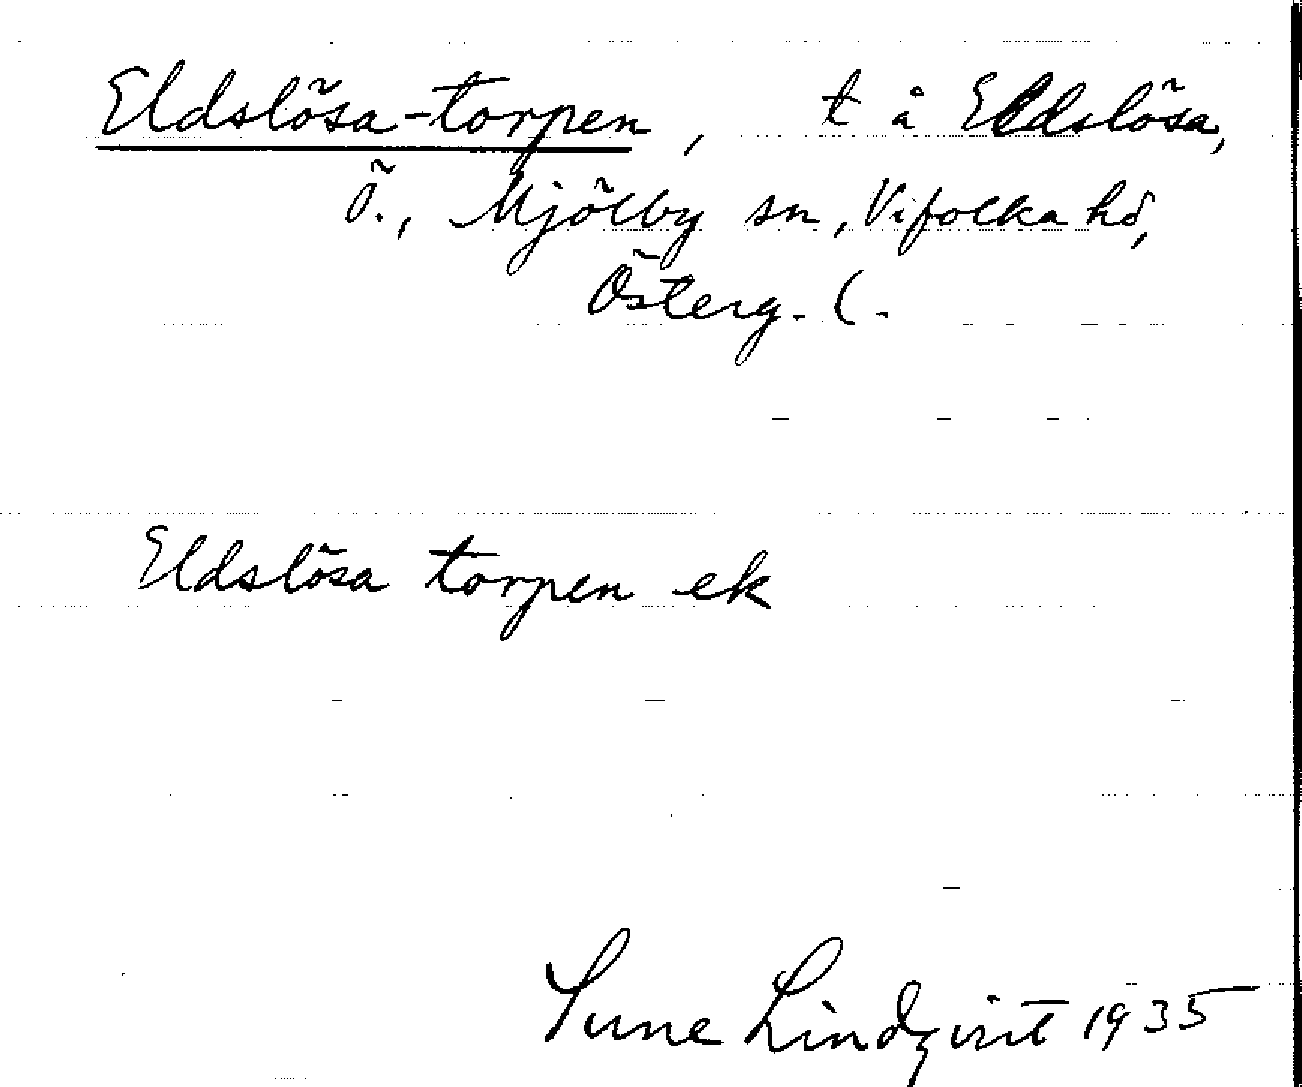 Eldslösa-torpen, t å Eldslösa,
Ö., Mjölby sn, Vifolka hd,
Österg. l.
Eldslösa torpen ek
Sune Lindqvist 1935